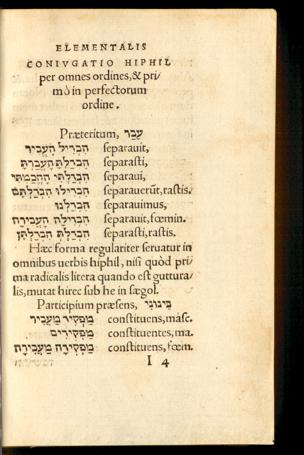 ELEMENTALIS
CONIVGATIO HIPHIL
per omnes ordines, & pri/
mò in perfectorum
ordine.
Præteritum, עבר
הבדיל העביר separauit,
הבדלת העברת separasti,
הבדלתי separaui,
הבדילו הבדלתם separauerūt, rastis.
הבדלנו separauimus,
הבדילה העבירה separauit, fœmin.
הבדלת הבדלתן separasti, rastis.
Hæc forma regulariter seruatur in
omnibus uerbis hiphil, nisi quòd pri
ma radicalis litera quando est guttura/
lis, mutat hirec sub he in sægol.
Participium præsens, בינוני
מפקיד מעביר constituens, masc.
מפקידים constituentes, ma.
מפקידה מעבירה constituens, fœm.
I 4